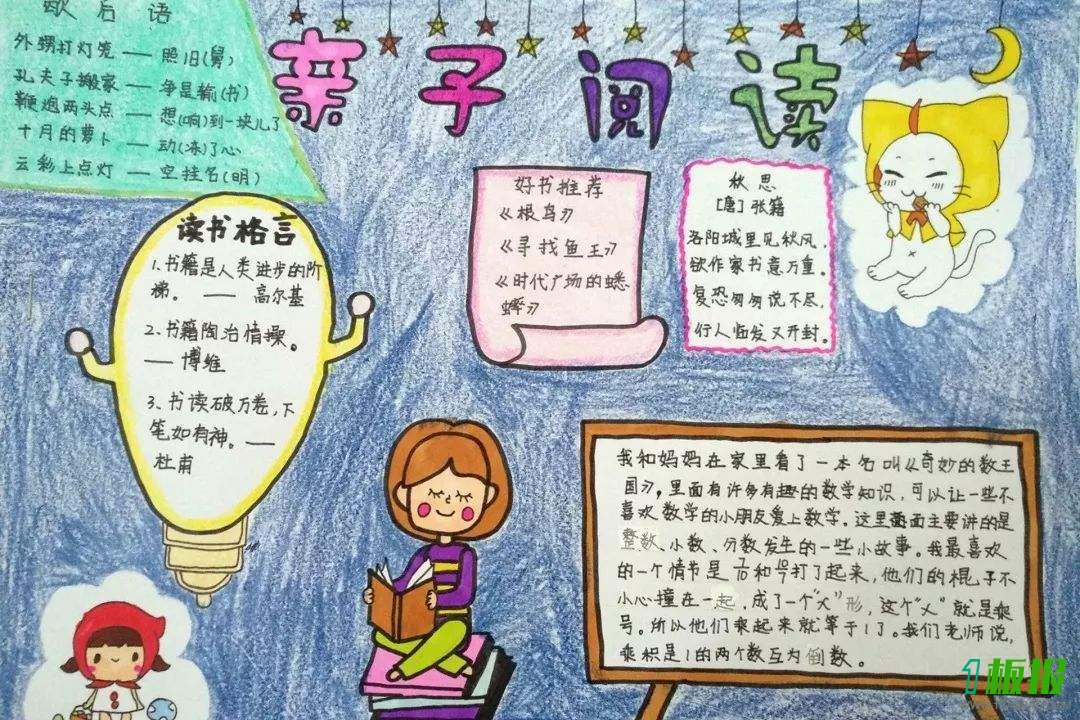 歇后语
外甥打灯笼——照旧(舅)
孔夫子搬家——争是输(书)
鞭炮两头点——想(响)到一块儿了
十月的萝卜——动(冻)了心
云彩上点灯——空挂名(明)
亲子阅读
读书格言
1.书籍是人类进步的阶
梯。——高尔基
2.书籍陶冶情操。
——博维
3.书读破万卷,下
笔如有神。——
杜甫
好书推荐
《根鸟》
《寻找鱼王》
《时代广场的蟋
蟀》
秋思
[唐]张籍
洛阳城里见秋风,
欲作家书意万重。
复恐匆匆说不尽,
行人临发又开封。
我和妈妈在家里看了一本名叫《奇妙的数王
国》,里面有许多有趣的数学知识,可以让一些不
喜欢数学的小朋友爱上数学。这里面主要讲的是
整数、小数、分数发生的一些小故事。我最喜欢
的一个情节是和打了起来,他们的棍子不
小心撞在一起,成了一个"乂"形,这个"乂"就是乘
号。所以他们乘起来就等于1了。我们老师说,
乘积是1的两个数互为倒数。
1板报